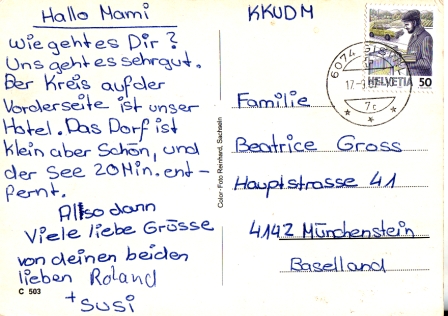 Hallo Mami
wie gehtes Dir?
Uns geht es sehrgut.
Der Kreis auf der
Vorderseite ist unser
Hotel. Das Dorf ist
klein aber Schön, und
der See 20 Min. ent-
fernt.
Also dann
Viele liebe Grüsse
von deinen beiden
lieben Roland
+ Susi
C 503
Color-Foto Reinhard, Sachseln
KKUDM
6074 GIS
17-9
7c
HELVETIA 50
Familie
Beatrice Gross
Hauptstrasse 41
4142 Münchenstein
Baselland